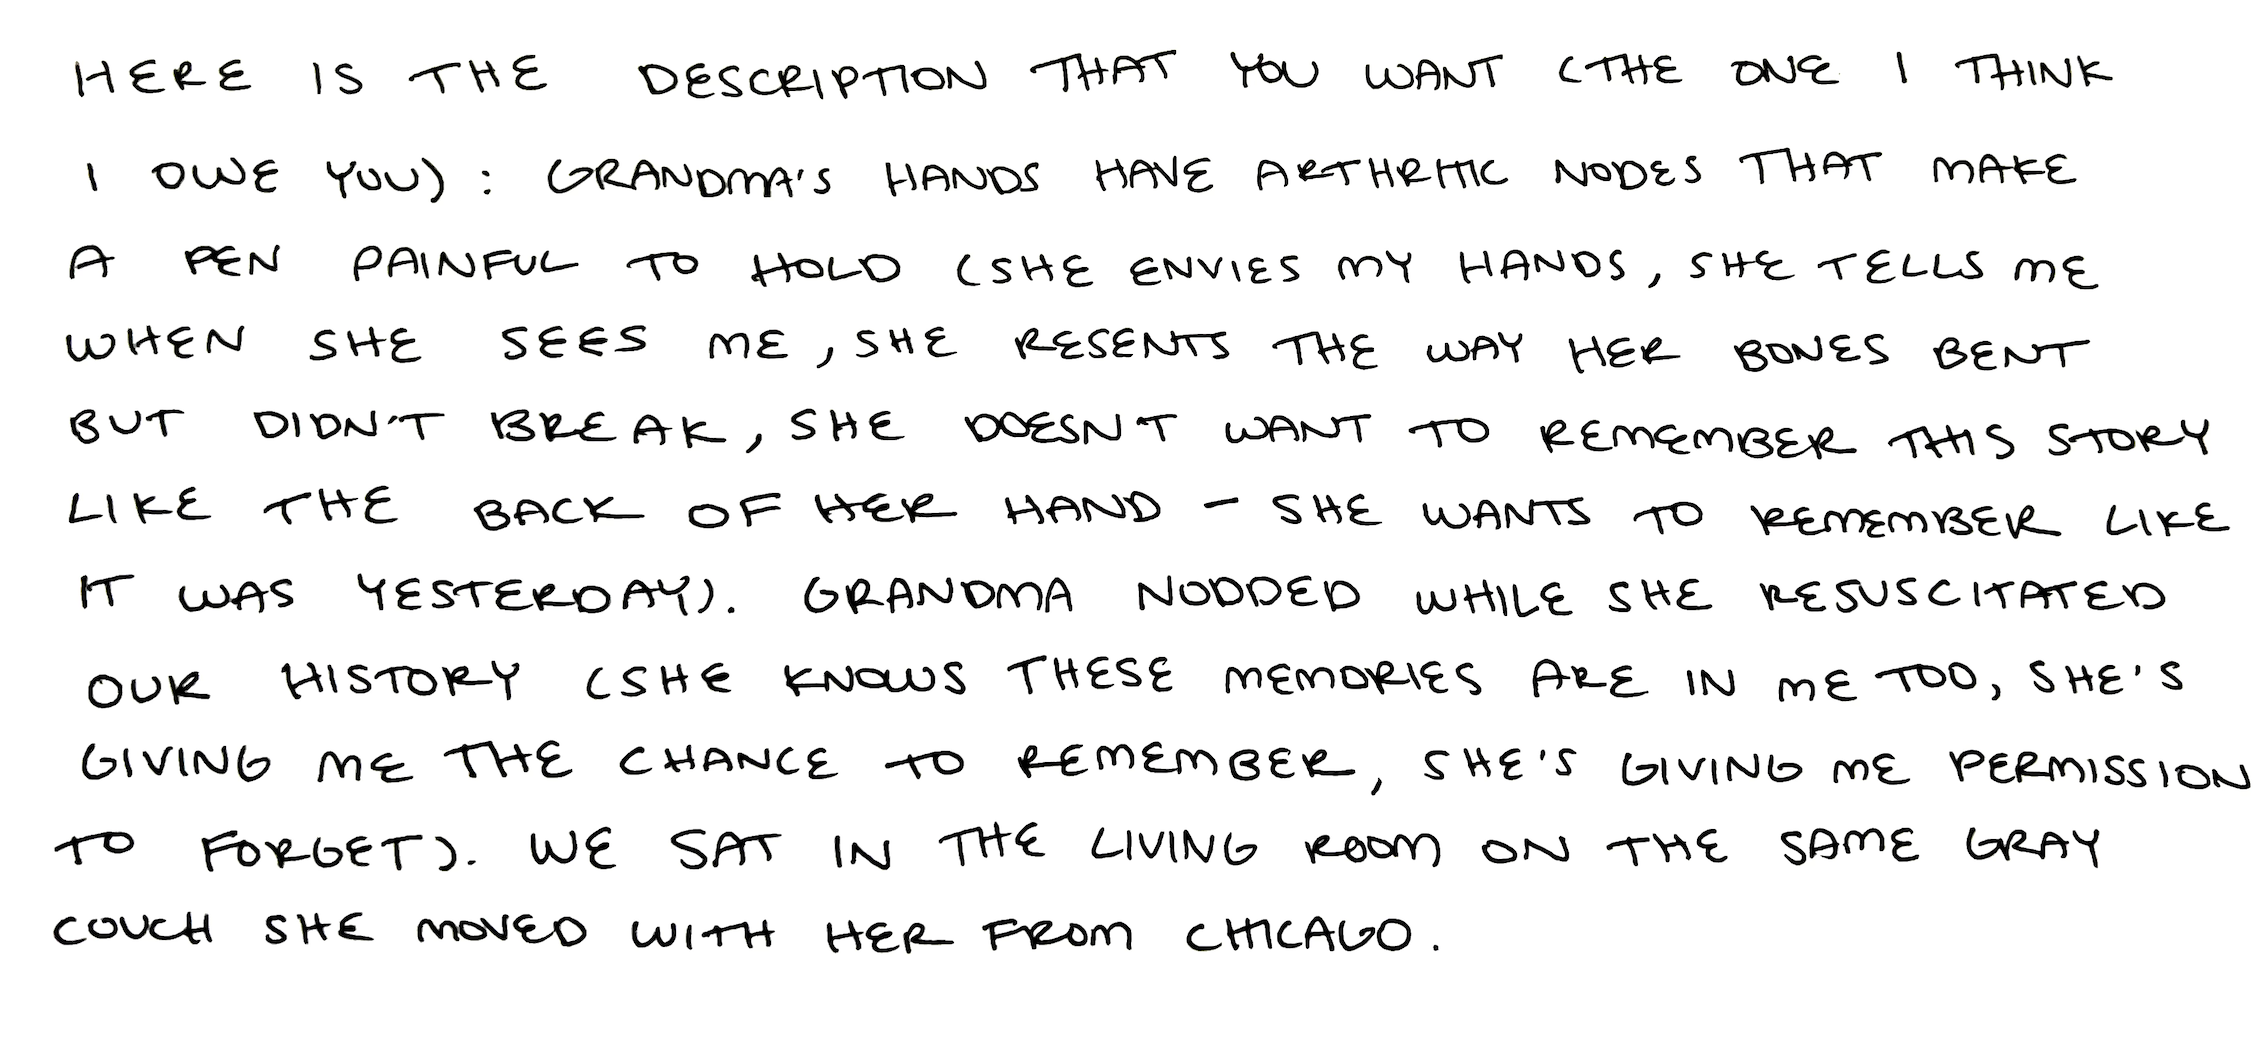 HERE IS THE DESCRIPTION THAT YOU WANT (THE ONE I THINK
I OWE YOU): GRANDMA'S HANDS HAVE ARTHRITIC NODES THAT MAKE
A PEN PAINFUL TO HOLD (SHE ENVIES MY HANDS, SHE TELLS ME
WHEN SHE SEES ME, SHE RESENTS THE WAY HER BONES BENT
BUT DIDN'T BREAK, SHE DOESN'T WANT TO REMEMBER THIS STORY
LIKE THE BACK OF HER HAND - SHE WANTS TO REMEMBER LIKE
IT WAS YESTERDAY). GRANDMA NODDED WHILE SHE RESUSCITATED
OUR HISTORY (SHE KNOWS THESE MEMORIES ARE IN ME TOO, SHE'S
GIVING ME THE CHANCE TO REMEMBER, SHE'S GIVING ME PERMISSION
TO FORGET). WE SAT IN THE LIVING ROOM ON THE SAME GRAY
COUCH SHE MOVED WITH HER FROM CHICAGO.